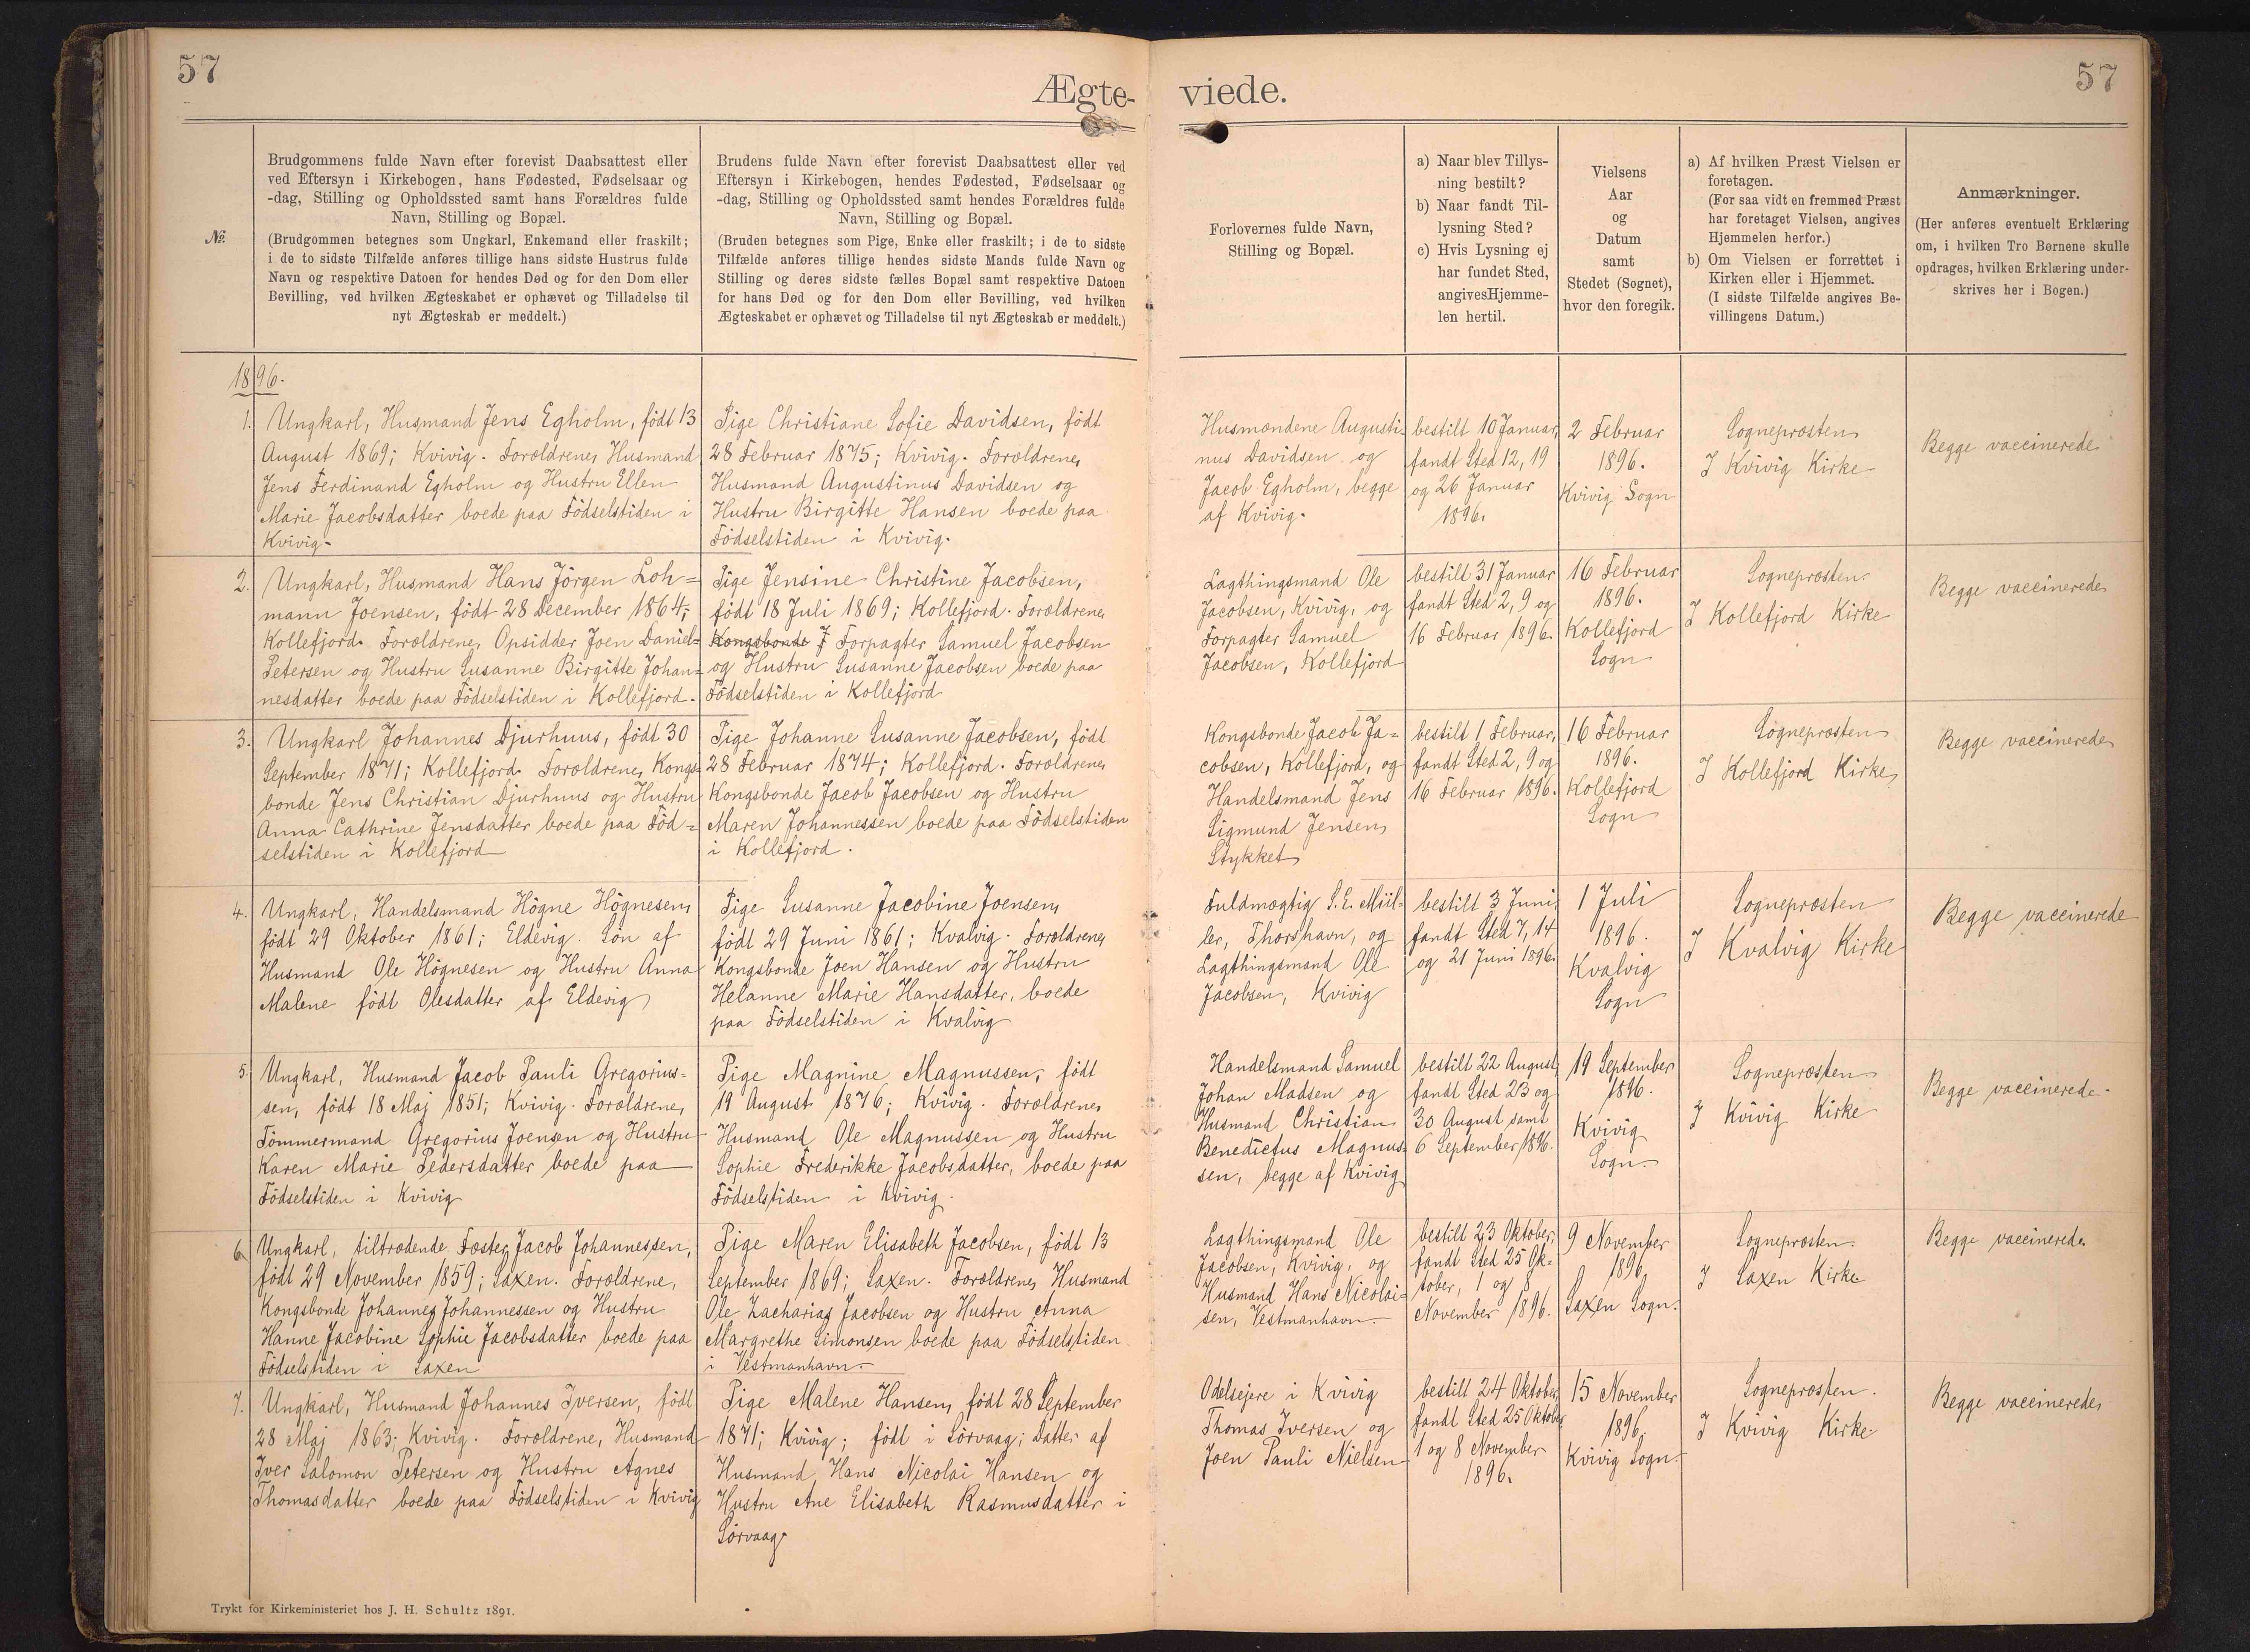 57
57
Ægte-
viede.
№.
Brudgommens fulde Navn efter forevist Daabsattest eller
ved Eftersyn i Kirkebogen, hans Fødested, Fødselsaar og
-dag, Stilling og Opholdssted samt hans Forældres fulde
Navn, Stilling og Bopæl.
(Brudgommen betegnes som Ungkarl, Enkemand eller fraskilt;
i de to sidste Tilfælde anføres tillige hans sidste Hustrus fulde
Navn og respektive Datoen for hendes Død og for den Dom eller
Bevilling, ved hvilken Ægteskabet er ophævet og Tilladelse til
nyt Ægteskab er meddelt.)
Brudens fulde Navn efter forevist Daabsattest eller ved
Eftersyn i Kirkebogen, hendes Fødested, Fødselsaar og
-dag, Stilling og Opholdssted samt hendes Forældres fulde
Navn, Stilling og Bopæl.
(Bruden betegnes som Pige, Enke eller fraskilt; i de to sidste
Tilfælde anføres tillige hendes sidste Mands fulde Navn og
Stilling og deres sidste fælles Bopæl samt respektive Datoen
for hans Død og for den Dom eller Bevilling, ved hvilken
Ægteskabet er ophævet og Tilladelse til nyt Ægteskab er meddelt.)
Forlovernes fulde Navn,
Stilling og Bopæl.
a) Naar blev Tillys-
ning bestilt?
b) Naar fandt Til-
lysning Sted?
c) Hvis Lysning ej
har fundet Sted,
angivesHjemme-
len hertil.
Vielsens
Aar
og
Datum
samt
Stedet (Sognet),
hvor den foregik.
a) Af hvilken Præst Vielsen er
foretagen.
(For saa vidt en fremmed Præst
har foretaget Vielsen, angives
Hjemmelen herfor.)
b) Om Vielsen er forrettet i
Kirken eller i Hjemmet.
(I sidste Tilfælde angives Be-
villingens Datum.)
Anmærkninger.
(Her anføres eventuelt Erklæring
om, i hvilken Tro Børnene skulle
opdrages, hvilken Erklæring under-
skrives her i Bogen.)
1896.
1.
Ungkarl, Husmand Jens Egholm, født 13
August 1869; Kvivig. Forældrene, Husmand
Jens Ferdinand Egholm og Hustru Ellen
Marie Jacobsdatter boede paa Födselstiden i
Kvivig.
Pige Christiane Sofie Davidsen, født
28 Februar 1875; Kvivig. Forældrene,
Husmand Augustinus Davidsen og
Hustru Birgitte Hansen boede paa
Födselstiden i Kvivig.
Husmændene Augusti-
nus Davidsen og
Jacob Egholm, begge
af Kvivig.
bestilt 10 Januar,
fandt Sted 12, 19
og 26 Januar
1896.
2 Februar
1896.
Kvivig Sogn
Sognepræsten
I Kvivig Kirke
Begge vaccinerede
2.
Ungkarl, Husmand Hans Jörgen Loh=
mann Joensen, født 28 December 1864;
Kollefjord. Forældrene, Opsidder Joen Daniel=
Petersen og Hustru Susanne Birgitte Johan=
nesdatter boede paa Födselstiden i Kollefjord.
Pige Jensine Christine Jacobsen,
født 18 Juli 1869; Kollefjord. Forældrene
Kongsbonde J Forpagter Samuel Jacobsen
og Hustru Susanne Jacobsen boede paa
Födselstiden i Kollefjord
Lagthingsmand Ole
Jacobsen, Kvivig, og
Forpagter Samuel
Jacobsen, Kollefjord
bestilt 31 Januar
fandt Sted 2, 9 og
16 Februar 1896.
16 Februar
1896.
Kollefjord
Sogn
Sognepræsten.
I Kollefjord Kirke
Begge vaccinerede
3.
Ungkarl Johannes Djurhuus, født 30
September 1871; Kollefjord. Forældrene, Kongs=
bonde Jens Christian Djurhuus og Hustru
Anna Cathrine Jensdatter boede paa Föd=
selstiden i Kollefjord
Pige Johanne Susanne Jacobsen, født
28 Februar 1874; Kollefjord. Forældrene
Kongsbonde Jacob Jacobsen og Hustru
Maren Johannessen boede paa Födselstiden
i Kollefjord.
Kongsbonde Jacob Ja=
cobsen, Kollefjord, og
Handelsmand Jens
Sigmund Jensen,
Stykket
bestilt 1 Februar,
fandt Sted 2, 9 og
16 Februar 1896.
16 Februar
1896.
Kollefjord
Sogn
Sognepræsten
I Kollefjord Kirke
Begge vaccinerede
4.
Ungkarl, Handelsmand Högne Högnesen,
født 29 Oktober 1861; Eldevig. Sön af
Husmand Ole Högnesen og Hustru Anna
Malene født Olesdatter af Eldevig
Pige Susanne Jacobine Joensen,
født 29 Juni 1861; Kvalvig. Forældrene,
Kongsbonde Joen Hansen og Hustru
Helanne Marie Hansdatter, boede
paa Födselstiden i Kvalvig
Fuldmægtig S. E. Mül-
ler, Thorshavn, og
Lagthingsmand Ole
Jacobsen, Kvivig
bestilt 3 Juni,
fandt Sted 7, 14
og 21 Juni 1896.
1 Juli
1896.
Kvalvig
Sogn
Sognepræsten
I Kvalvig Kirke
Begge vaccinerede
5.
Ungkarl, Husmand Jacob Pauli Gregorius=
sen, født 18 Maj 1851; Kvivig. Forældrene,
Tömmermand Gregorius Joensen og Hustru
Karen Marie Pedersdatter boede paa
Födselstiden i Kvivig
Pige Magnine Magnussen, født
19 August 1876; Kvivig. Forældrene,
Husmand Ole Magnussen og Hustru
Sophie Frederikke Jacobsdatter, boede paa
Födselstiden i Kvivig.
Handelsmand Samuel
Johan Madsen og
Husmand Christian
Benedictus Magnus=
sen, begge af Kvivig
bestilt 22 August,
fandt Sted 23 og
30 August samt
6 September 1896.
19 September
1896.
Kvivig
Sogn.
Sognepræsten
I Kvivig Kirke
Begge vaccinerede.
6.
Ungkarl, tiltrædende Fæster, Jacob Johannessen,
født 29 November 1859; Saxen. Forældrene,
Kongsbonde Johannes Johannessen og Hustru
Hanne Jacobine Sophie Jacobsdatter boede paa
Födselstiden i Saxen
Pige Maren Elisabeth Jacobsen, født 13
September 1869; Saxen. Forældrene, Husmand
Ole Zacharias Jacobsen og Hustru Anna
Margrethe Simonsen boede paa Födselstiden
i Vestmanhavn.
Lagthingsmand Ole
Jacobsen, Kvivig, og
Husmand Hans Nicolai=
sen, Vestmanhavn
bestilt 23 Oktober,
fandt Sted 25 Ok=
tober, 1 og 8
November 1896.
9 November
1896.
Saxen Sogn.
Sognepræsten.
I Saxen Kirke
Begge vaccinerede
7.
Ungkarl, Husmand Johannes Iversen, født
28 Maj 1863; Kvivig. Forældrene, Husmand
Iver Salomon Petersen og Hustru Agnes
Thomasdatter boede paa Födselstiden i Kvivig
Pige Malene Hansen, født 28 September
1871; Kvivig; født i Sörvaag; Datter af
Husmand Hans Nicolai Hansen og
Hustru Ane Elisabeth Rasmusdatter i
Sörvaag
Odelsejere i Kvivig
Thomas Iversen og
Joen Pauli Nielsen
bestilt 24 Oktober,
fandt Sted 25 Oktober
1 og 8 November
1896.
15 November
1896.
Kvivig Sogn.
Sognepræsten.
I Kvivig Kirke
Begge vaccinerede
Trykt for Kirkeministeriet hos J. H. Schultz 1891.